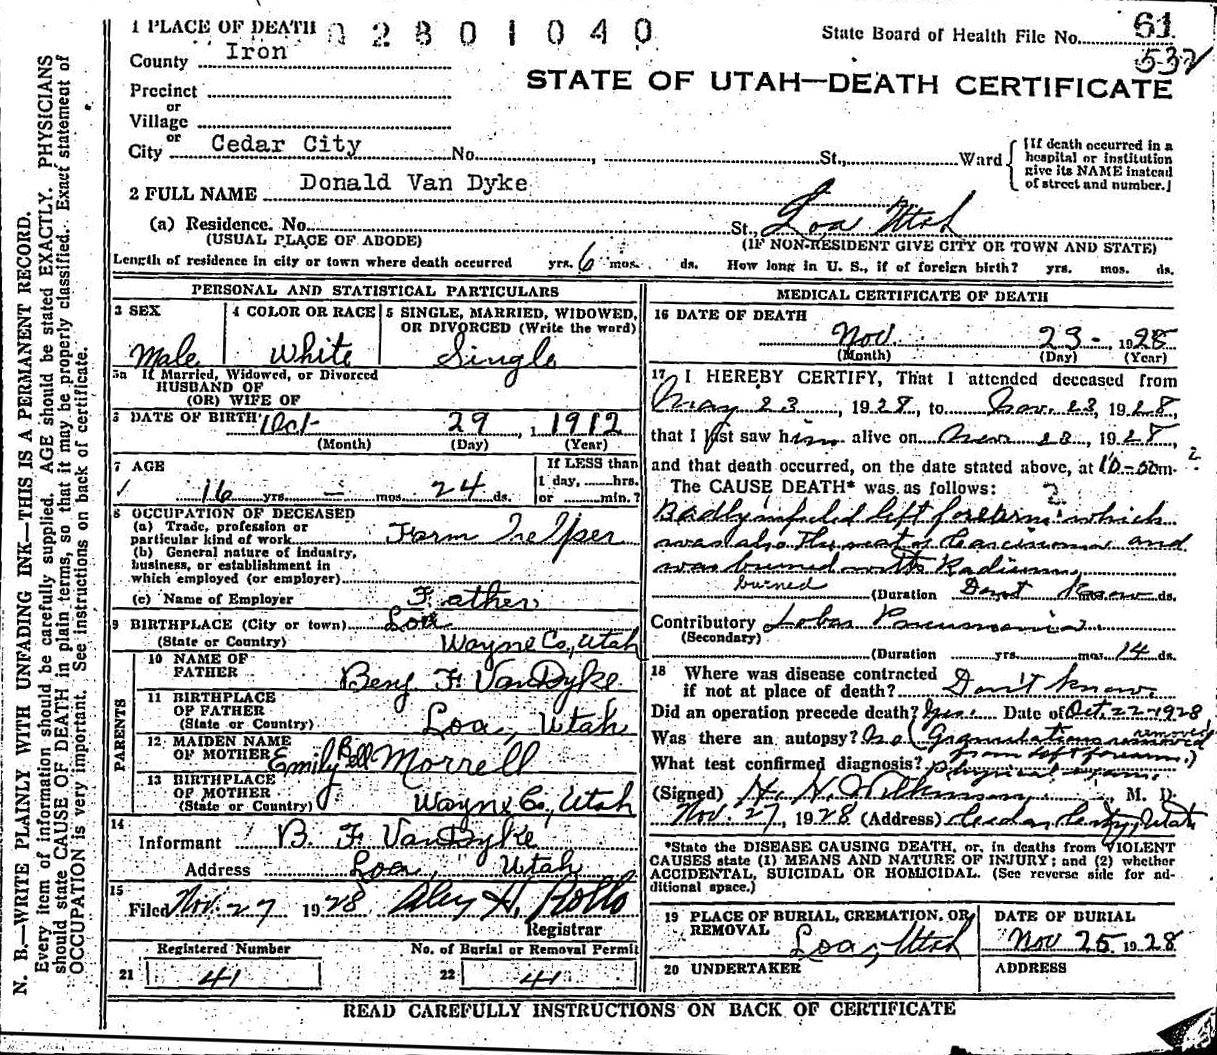 1 PLACE OF DEATH 02801040 State Board of Health File No. 61
County Iron 532
STATE OF UTAH—DEATH CERTIFICATE
Precinct
or
Village
or
City Cedar City No. , St., Ward {[If death occurred in a hospital or institution give its NAME instead of street and number.]
2 FULL NAME Donald Van Dyke
(a) Residence. No. St., Loa Utah
(USUAL PLACE OF ABODE) (IF NON-RESIDENT GIVE CITY OR TOWN AND STATE)
Length of residence in city or town where death occurred yrs. 6 mos. ds. How long in U. S., if of foreign birth? yrs. mos. ds.
PERSONAL AND STATISTICAL PARTICULARS
3 SEX
Male
4 COLOR OR RACE
White
5 SINGLE, MARRIED, WIDOWED,
OR DIVORCED (Write the word)
Single
5a If Married, Widowed, or Divorced
HUSBAND OF
(OR) WIFE OF
6 DATE OF BIRTH Oct 29, 1912
(Month) (Day) (Year)
7 AGE
16 yrs. — mos. 24 ds.
If LESS than
1 day, hrs.
or min.?
8 OCCUPATION OF DECEASED
(a) Trade, profession or
particular kind of work Farm Helper
(b) General nature of industry,
business, or establishment in
which employed (or employer)
(c) Name of Employer Father
9 BIRTHPLACE (City or town) Loa
(State or Country) Wayne Co., Utah
PARENTS
10 NAME OF
FATHER Benj F. VanDyke
11 BIRTHPLACE
OF FATHER
(State or Country) Loa, Utah
12 MAIDEN NAME
OF MOTHER Emily Bell Morrell
13 BIRTHPLACE
OF MOTHER
(State or Country) Wayne Co, Utah
14
Informant B. F. VanDyke
Address Loa, Utah
15
Filed Nov. 27 1928 H. Rollo
Registrar
Registered Number No. of Burial or Removal Permit
21 41 22 41
MEDICAL CERTIFICATE OF DEATH
16 DATE OF DEATH
Nov. 23-, 1928
(Month) (Day) (Year)
17 I HEREBY CERTIFY, That I attended deceased from
May 23, 1928, to Nov. 23, 1928,
that I last saw him alive on Nov 23, 1928,
and that death occurred, on the date stated above, at 10-50 m. ?
The CAUSE DEATH* was as follows:
?
Badly infected left forearm which
was also the seat of Carcinoma and
was burned with Radium
burned
(Duration Don't Know ds.
Contributory Lobar Pneumonia
(Secondary)
(Duration yrs. mos. 14 ds.
18 Where was disease contracted
if not at place of death? Don't know
Did an operation precede death? Yes. Date of Oct. 22-1928
Was there an autopsy? No Granulations removed removed
from left forearm.)
What test confirmed diagnosis? physical exam.
(Signed) H. N. Wilkinson M. D.
Nov. 27, 1928 (Address) Cedar City, Utah
*State the DISEASE CAUSING DEATH, or, in deaths from VIOLENT
CAUSES state (1) MEANS AND NATURE OF INJURY; and (2) whether
ACCIDENTAL, SUICIDAL OR HOMICIDAL. (See reverse side for ad-
ditional space.)
19 PLACE OF BURIAL, CREMATION, OR
REMOVAL Loa, Utah
DATE OF BURIAL
Nov 25 1928
20 UNDERTAKER
ADDRESS
READ CAREFULLY INSTRUCTIONS ON BACK OF CERTIFICATE
N. B.—WRITE PLAINLY WITH UNFADING INK—THIS IS A PERMANENT RECORD.
Every item of information should be carefully supplied. AGE should be stated EXACTLY. PHYSICIANS
should state CAUSE OF DEATH in plain terms, so that it may be properly classified. Exact statement of
OCCUPATION is very important. See instructions on back of certificate.